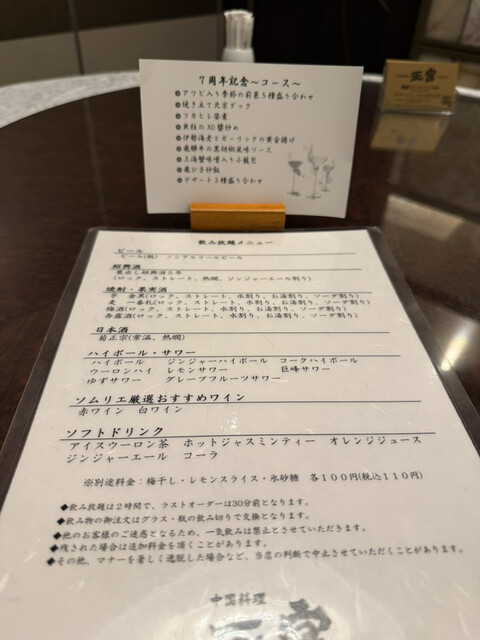 7周年記念〜コース〜
●アワビ入り季節の前菜5種盛り合わせ
●焼き立て北京ダック
●フカヒレ姿煮
●貝柱のXO醤炒め
●伊勢海老とガーリックの黄金揚げ
●飛騨牛の黒胡椒風味ソース
●上海蟹味噌入り小籠包
●飛び子炒飯
●デザート3種盛り合わせ
飲み放題メニュー
ビール
ビール(瓶) ノンアルコールビール
紹興酒
甕出し紹興酒5年
(ロック、ストレート、熱燗、ジンジャーエール割り)
焼酎・果実酒
芋 金黒(ロック、ストレート、水割り、お湯割り、ソーダ割り)
麦 一番札(ロック、ストレート、水割り、お湯割り、ソーダ割り)
梅酒(ロック、ストレート、水割り、お湯割り、ソーダ割り)
杏露酒(ロック、ストレート、水割り、お湯割り、ソーダ割り)
日本酒
菊正宗(常温、熱燗)
ハイボール・サワー
ハイボール ジンジャーハイボール コークハイボール
ウーロンハイ レモンサワー 巨峰サワー
ゆずサワー グレープフルーツサワー
ソムリエ厳選おすすめワイン
赤ワイン 白ワイン
ソフトドリンク
アイスウーロン茶 ホットジャスミンティー オレンジジュース
ジンジャーエール コーラ
※別途料金：梅干し・レモンスライス・氷砂糖 各100円(税込110円)
◆飲み放題は2時間で、ラストオーダーは30分前となります。
◆飲み物の御注文はグラス・瓶の飲み切りで交換となります。
◆他のお客様のご迷惑となるため、一気飲みは禁止とさせていただきます。
◆残された場合は追加料金を頂くことがあります。
◆その他、マナーを著しく逸脱した場合など、当店の判断で中止させていただくことがあります。
中国料理